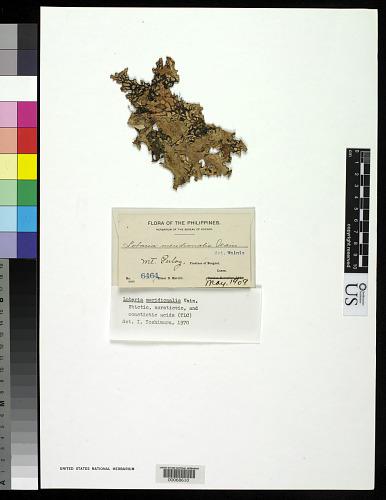 FLORA OF THE PHILIPPINES.
HERBARIUM OF THE BUREAU OF SCIENCE.
Lobaria meridionalis Wain.
det. Wainio
Mt. Pulog, Province of Benguet,
Luzon.
No. 6464
May, 1909
Lobaria meridionalis Vain.
Stictic, norstictic, and
constictic acids (TLC)
det. I. Yoshimura, 1970
copyright reserved
cm
US
UNITED STATES NATIONAL HERBARIUM
00068630